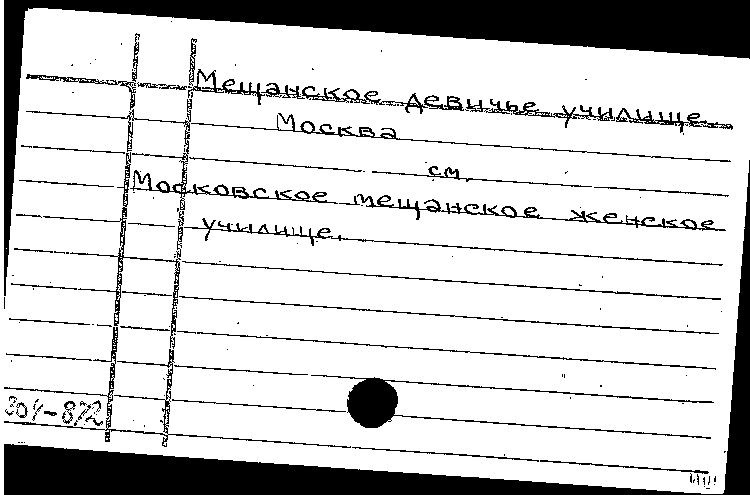 Мещанское девичье училище.
Москва
см.
Московское мещанское женское
училище.
304-872